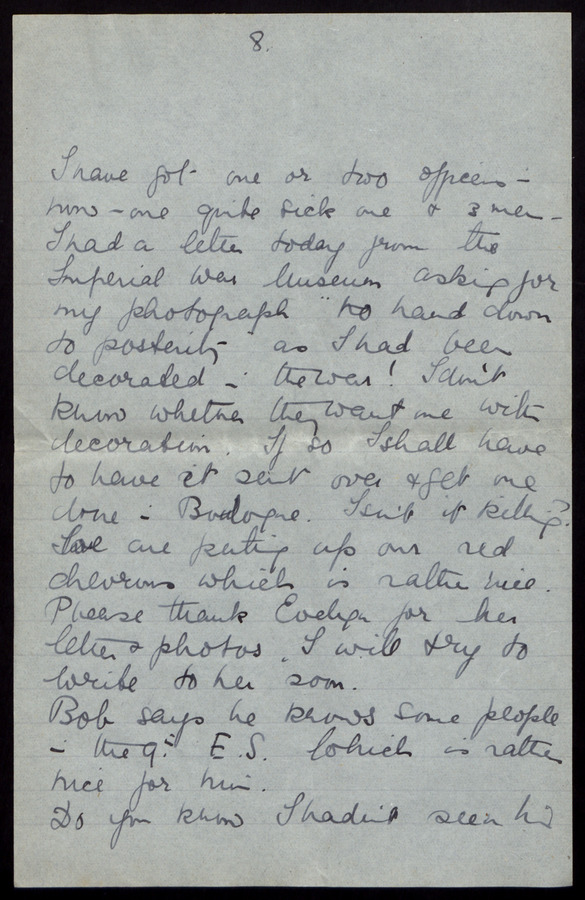 8.
I have got one or two officers -
now - one quite sick one & 3 men -
I had a letter today from the
Imperial War Museum asking for
my photograph "to hand down
to posterity" as I had been
decorated - in the war! I don't
know whether they want me with
decoration. If so I shall have
to have it sent over & get one
done in Boulogne. Isn't it killing?
We are putting up our red
chevrons which is rather nice.
Please thank Evelyn for her
letter & photos. I will try to
write to her soon.
Bob says he knows some people
in the 9th E.S. which is rather
nice for him.
Do you know I hadn't seen his